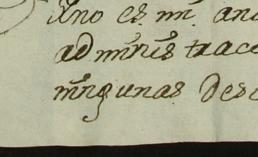 no es mi an
ad minis trac
ningunas Des